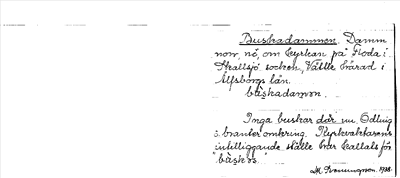 Buskadammen. Damm
norr, nö, om kyrkan på Floda i
Skallsjö socken, Vättle härad i
Älfsborgs län.
båskadamen.
Inga buskar där nu. Odling
o. branter omkring. Kyrkvaktarens
intilliggande ställe har kallats för
"båsk os"
1938.